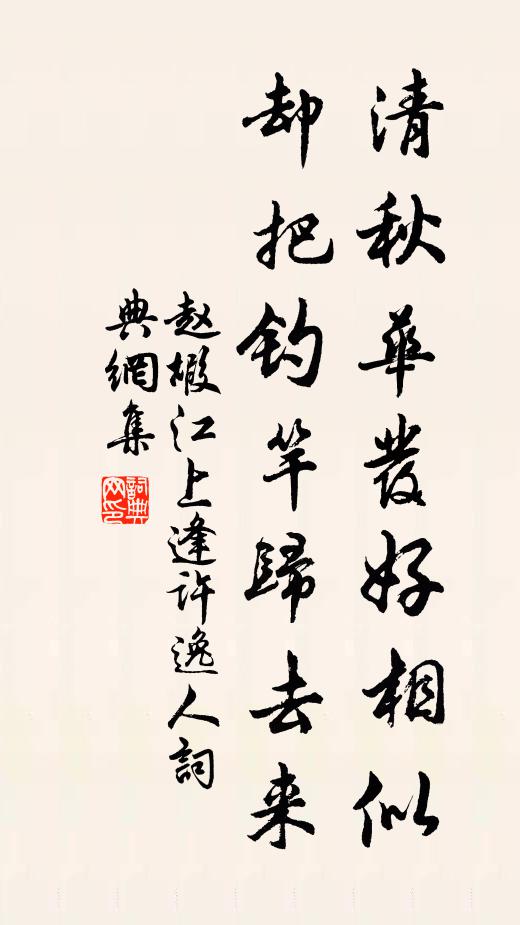 清秋華發好相似
却把釣竿歸去来
赵嘏江上逢許逸人詞
典網集
詞典
网印